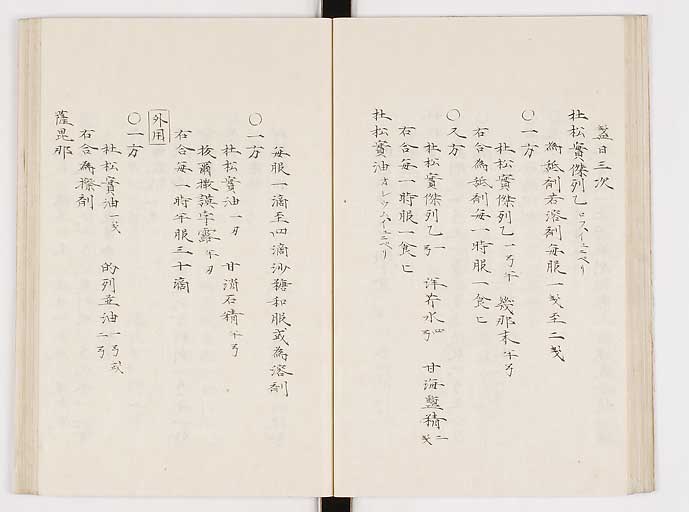 盞日三次
杜松實傑列乙 ロスイユニペリ
為舐劑若溶劑每服一戔至二戔
〇一方
杜松實傑列乙一ヲ半 幾那末半ヲ
右合為舐劑每一時服一食匕
〇又方
杜松實傑列乙一ヲ 洋芥水四ヲ 甘海鹽精二戔
右合每一時服一食匕
杜松實油 オレウムイユニペリ
每服一滴至四滴沙糖和服或為溶劑
〇一方
杜松實油一刃 甘消石精半ヲ
拔爾撒謨 露半刃
右合每一時半服三十滴
外用
〇一方
杜松實油一戔 的列並油一ヲ或二ヲ
右合為擦劑
薩毘那